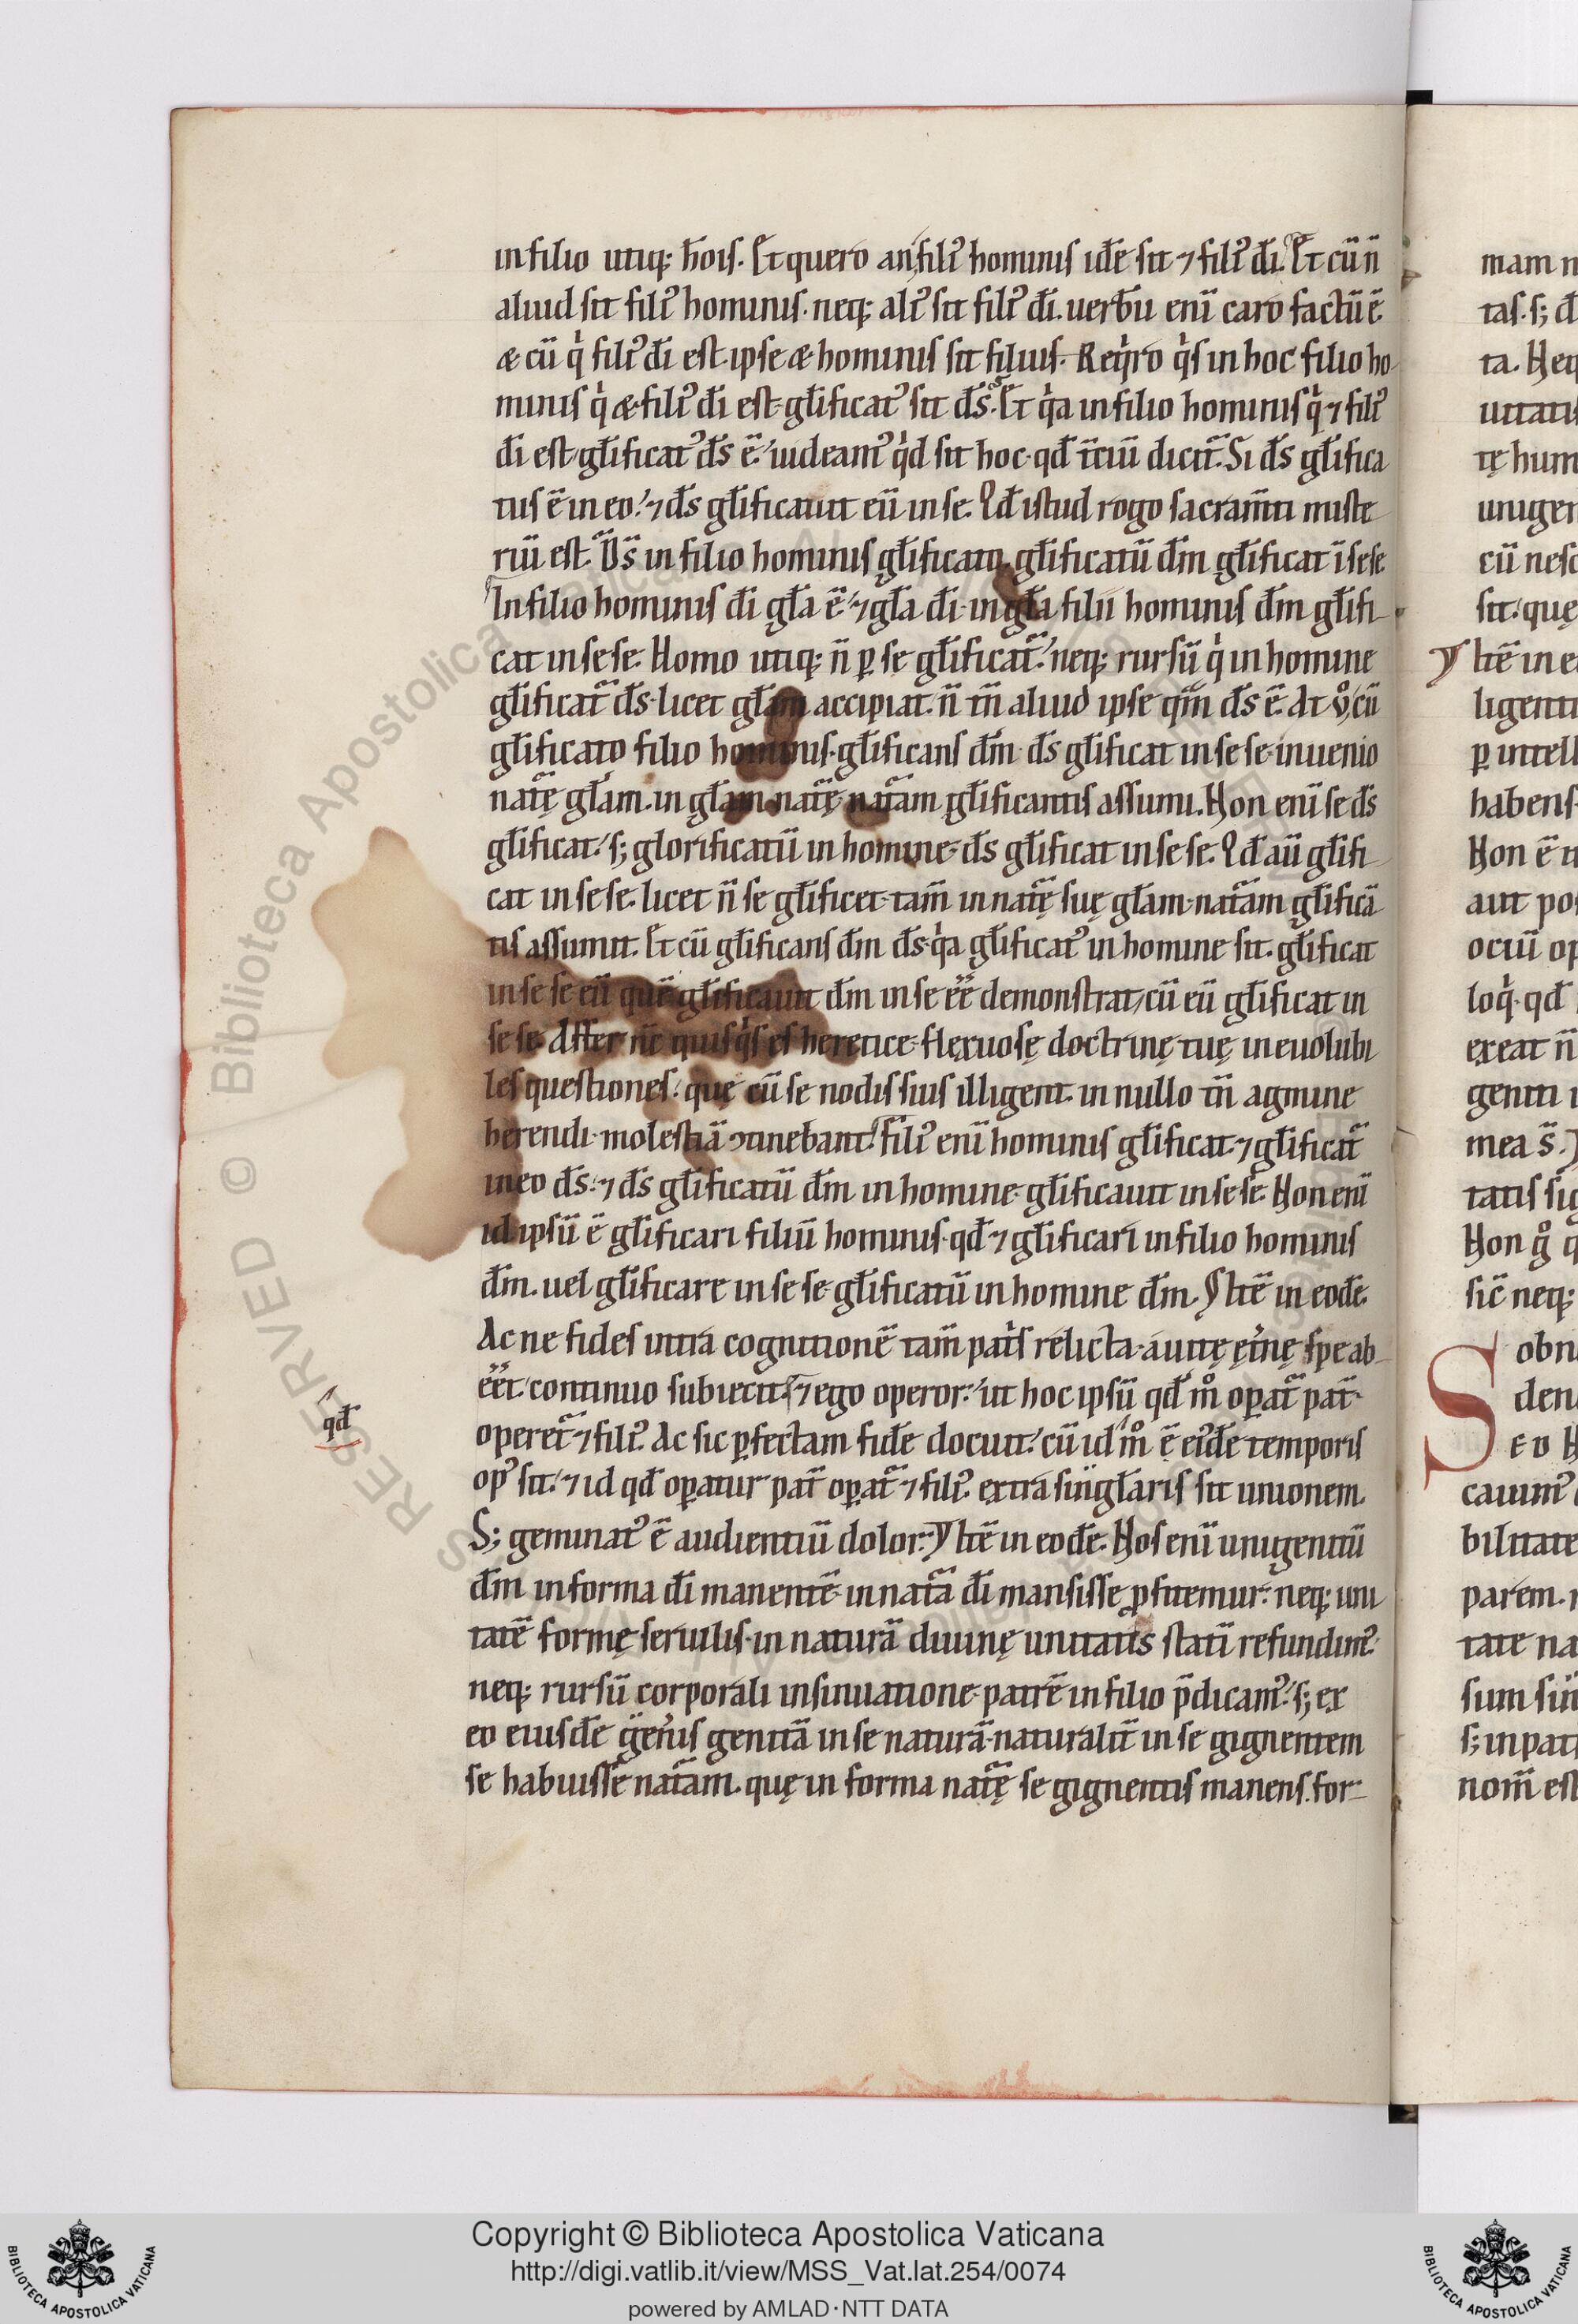 in filio utiq; ħoıſ. Et quero an filiꝰ hominiſ idē ſit ⁊ filiꝰ dı̄. Et cū n̄
aliud ſit filiꝰ hominiſ. neq; aliꝰ ſit filiꝰ dı̄. uerbū enı̄ caro factū ē.
æ cū qͥ filiꝰ dı̄ eſt. ipſe æ hominiſ ſit filiuſ. Reqͥro qͥſ in hoc filio ho-
miniſ qͥ æ filiꝰ dı̄ eſt. gƚificatꝰ ſit dſ̄. Et qͥa in filio hominiſ qͥ ⁊ filiꝰ
dı̄ eſt gƚificatꝰ dſ̄ ē. uideamꝰ qͥd ſit hoc. qđ t̄ciū dicit̄. Si dſ̄ gƚifica
tuſ ē in eo. ⁊ dſ̄ gƚificauit eū in ſe. Qđ iſtud rogo ſacram̄ti miſte
riū eſt. Dſ̄ in filio hominiſ gƚificato. gƚificatū dm̄ gƚificat ı̄ ſeſe
In filio hominiſ dı̄ gƚa ē. ⁊ gƚa dı̄. in gƚa filii hominiſ dm̄ gƚifi-
cat in ſeſe. Homo utiq; n̄ ꝑ ſe gƚificat̄. neq; rurſū qͥ in homine
gƚificat̄ dſ̄. licet gƚam accipiat. n̄ tn̄ aliud ipſe qm̄ dſ̄ ē. At ůͦ cū
gƚificato filio hominiſ. gƚificanſ dm̄ dſ̄ gƚificat in ſeſe. inuenio
nat̄ę gƚam. in gƚam nat̄ę. nat̄am gƚificantiſ aſſumi. Non enı̄ ſe dſ̄
gƚificat. ſ; glorificatū in homine. dſ̄ gƚificat in ſe ſe. Qđ aū gƚifi-
cat in ſeſe. licet n̄ ſe gƚificet. tam̄ in nat̄ę ſuę gƚam. nat̄am gƚificā
tiſ aſſumit. Et cū gƚificanſ dm̄ dſ̄. qͥa gƚificatꝰ in homine ſit. gƚificat
in ſe ſe eū quē gƚificauit dm̄ in ſe eē demonſtrat, cū eū gƚificat in
ſe ſe. Affer nc̄ quiſqͥſ eſ heretice. flexuoſę doctrinę tuę ineuolubi
leſ queſtioneſ. quę cū ſe nodiſ ſuiſ illigent. in nullo tn̄ agmine
herendi. moleſtiā ꝯtinebant. Filiꝰ enı̄ hominiſ gƚificat̄. ⁊ gƚificat̄
in eo dſ̄. ⁊ dſ̄ gƚificatū dm̄ in homine. gƚificauit in ſe ſe. Non enı̄
id ipſū ē gƚificari filiū hominiſ. qđ ⁊ gƚificari in filio hominiſ
dm̄. uel gƚificare in ſe ſe. gƚificatū in homine dm̄. Ƴ Itē in eodē.
Ac ne fideſ intra cognitionē tam̄ patͥſ relicta. a uitę et̄nę ſpe ab-
eēt. continuo ſubiecit. ⁊ ego operor. ut hoc ipſū qđ mͦ oꝑat̄ pat̄.
operet̄ ⁊ filiꝰ. Ac ſic ꝑfectam fidē docuit. cū id mͦ ē eiꝰdē temporiſ
qđ
opꝰ ſit. ⁊ id qđ oꝑatur pat̄ oꝑat̄ ⁊ filiꝰ. extra ſingƚariſ ſit unionem.
S; geminatꝰ ē audientiū dolor. Ƴ Itē in eodē. Noſ enı̄ unigenitū
dm̄ in forma dı̄ manentē. in nat̄a dı̄ manſiſſe ꝓfitemur. neq; uni
tatē formę ſeruiliſ. in naturā diuinę unitatiſ ſtatī refundimꝰ.
neq; rurſū corporali inſinuatione. patrē in filio p̄dicamꝰ. ſ; ex
eo eiuſdē geñiſ genitā in ſe naturā. naturalit̄ in ſe gignentem
ſe habuiſſe nat̄am. quę in forma nat̄ę ſe gignentiſ manenſ. for-
mam n
taſ. ſ; đ
ta. Neq
uitatiſ
tę hum
unigen
cū neſc
ſit. quę
Ƴ Itē in e
ligenti
ꝑ intell
habenſ
Non ē
aut poſ
ociū op
loqͥ. qđ
exeat n̄
geniti
mea ſ̄.
tatiſ ſig
Non gͦ q
ſic̄ neq;
S obn
den
eo N
cauimꝰ
bilitate
parem.
tate na
ſum ſin
ſ; in pat
nom̄ eſt
RESERVED © Biblioteca Apostolica Vaticana
BIBLIOTECA APOSTOLICA VATICANA
Copyright © Biblioteca Apostolica Vaticana
http://digi.vatlib.it/view/MSS_Vat.lat.254/0074
powered by AMLAD·NTT DATA
BIBLIOTECA APOSTOLICA VATICANA